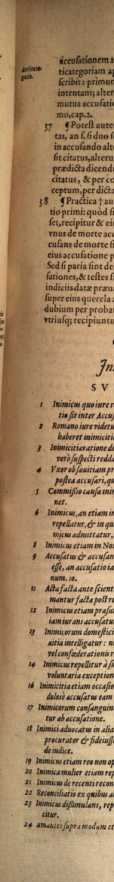 accusationem s
ticategoriam ap
scribit: primum
intentam; alter
mutua accusatio
mo, cap. 2.
37 ¶ Potest aute
tas, an si duo s
in accusando alt
sit citatus, alteru
prædicta dicenda
citatus, & per co
ceptum, per dicta
38 ¶ Practica † au
tio primi: quòd s
set, recipitur & ei
vnus de morte ac
cusans de morte s
eius accusatione p
Sed si paria sint de
sationes, & testes s
indiciis datæ præu
super eius querela a
dubium per proba
vtriusq; recipiunt
SV
1 Inimicus quo iure r
tio sit inter Accus
2 Romano iure videtu
haberet inimicitia
3 Inimicitia ratione di
verò suspecti redda
4 Vxor ob sæuitiam pr
postea accusari, qu
5 Commissio causa inim
net.
6 Inimicus, an etiam in
repellatur, & in qu
micus admittatur,
8 Inimicus etiam in No
9 Accusatus & accusan
esse, an accusatio ia
num. 10.
11 Acta facta ante scient
mantur facta post re
12 Inimicus etiam præsu
iam iur ans accusatu
13 Inimicorum domestici
uitia intelligatur: n
vel confœderationis r
14 Inimicus repellitur à s
voluntaria exception
16 Inimicitia etiam occasio
dolosè accusatus eam
17 Inimicorum consanguin
tur ab accusatione.
18 Inimici aduocatus in alia
procurator & fideiuss
de iudice.
19 Inimicus etiam reo non op
20 Inimica mulier etiam rep
21 Inimicus de recenti recon
22 Reconciliatio ex quibus a
23 Inimicus dissimulans, rep
citur.
24 amicus supra modum et